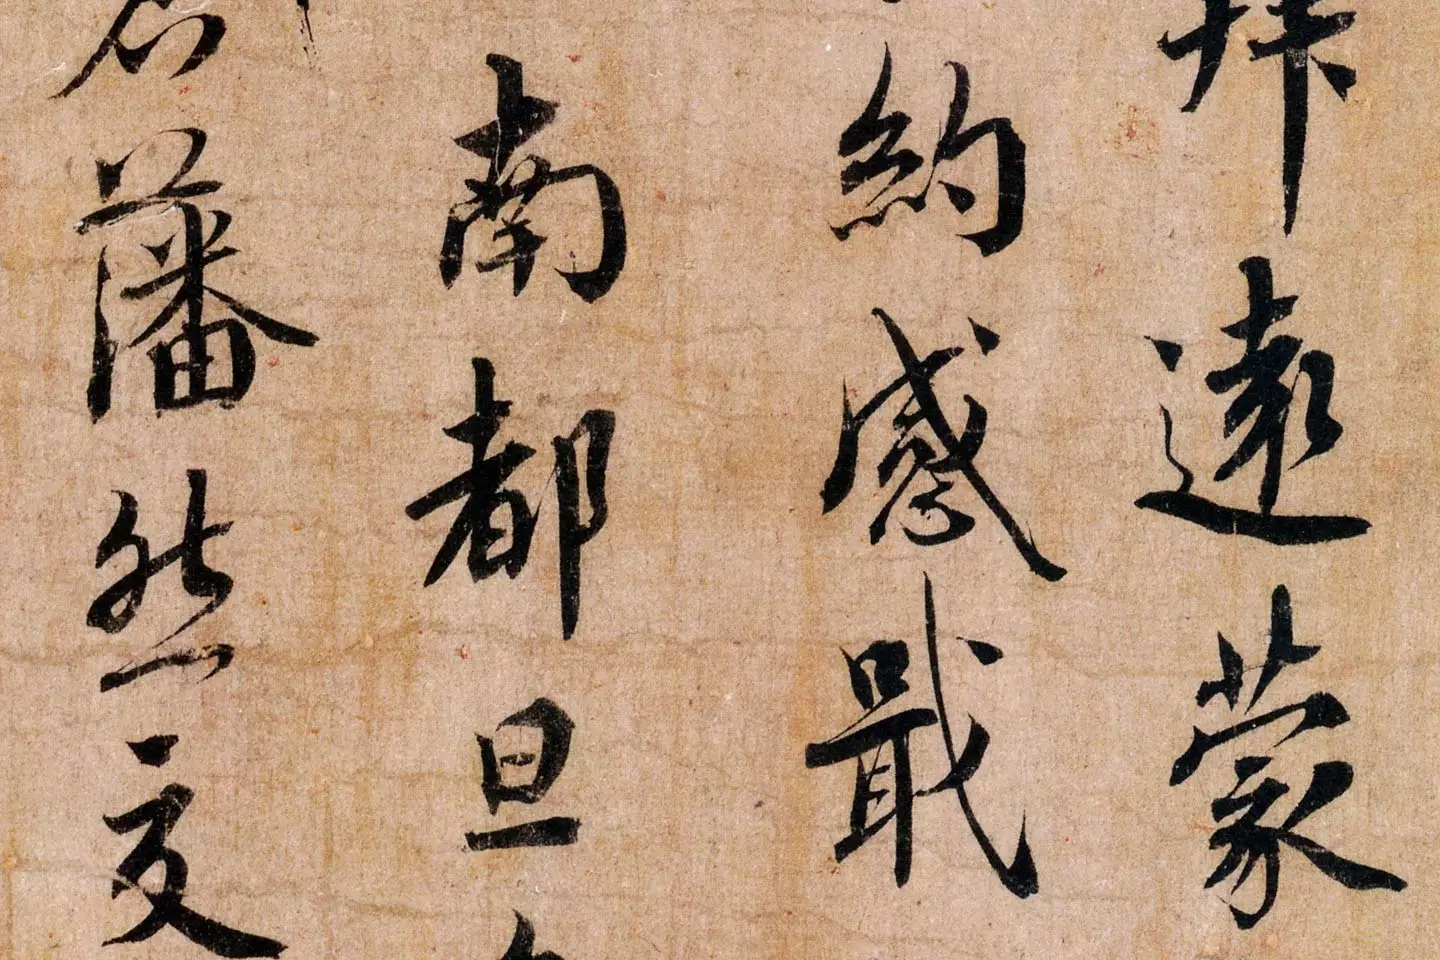 拜遠蒙
約感戢
南都旦
藩然